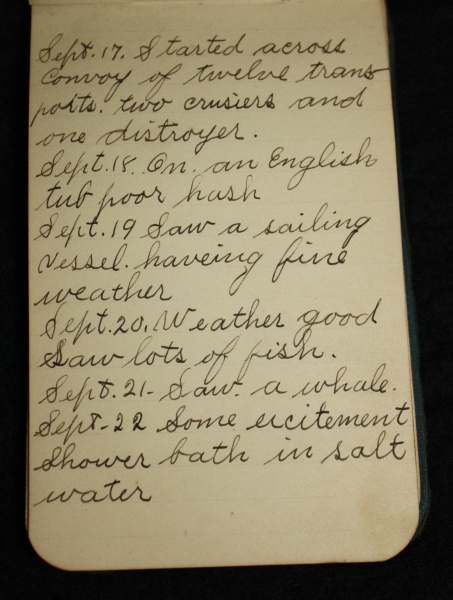 Sept. 17. Started across
Convoy of twelve trans
ports. two crusiers and
one distroyer.
Sept. 18. On. an English
tub poor hash
Sept. 19 Saw a sailing
Vessel. haveing fine
weather
Sept. 20. Weather good
Saw lots of fish.
Sept. 21- Saw. a whale.
Sept-22 Some exitement
Shower bath in salt
water